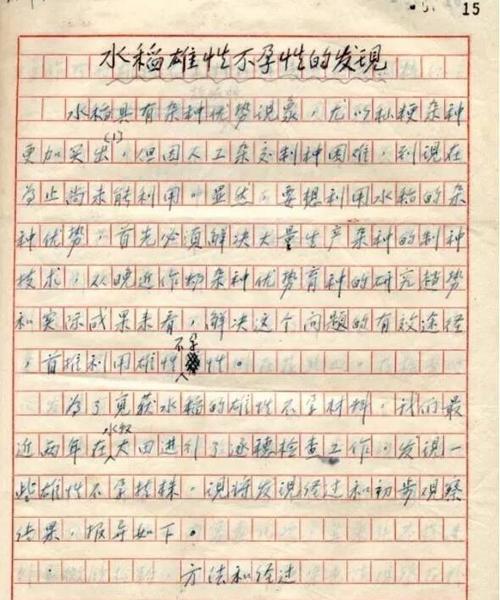 15
水稻雄性不孕性的发现
水稻具有杂种优势现象，尤以籼粳杂种
更加突出(1)，但因人工杂交制种困难，到现在
为止尚未能利用。显然，要想利用水稻的杂
种优势，首先必须解决大量生产杂种的制种
技术，从晚近作物杂种优势育种的研究趋势
和实际成果来看，解决这个问题的有效途径
，首推利用雄性不孕性。
为了觅获水稻的雄性不孕材料，我们最
近两年在水稻大田进行了逐穗检查工作，发现一
些雄性不孕植株，现将发现经过和初步观察
结果，报导如下。
方法和经过